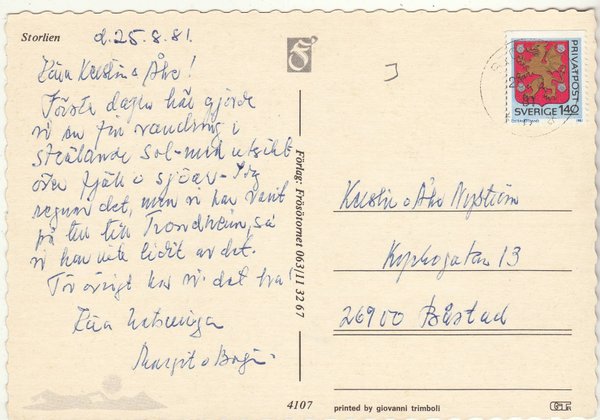 Storlien
d. 25.8.81.
Kära Kerstin o Åke!
Första dagen här gjorde
vi en fin vandring i
strålande sol med utsikt
över fjäll o sjöar. Idag
regnar det, men vi har varit
på tur till Trondheim, så
vi har inte lidit av det.
För övrigt har vi det bra!
Kära hälsningar
Margit o
Förlag: Frösötornet 063/11 32 67
PRIVATPOST
SVERIGE 140
Kerstin o Åke Nyström
13
26900 Båstad
4107
printed by giovanni trimboli